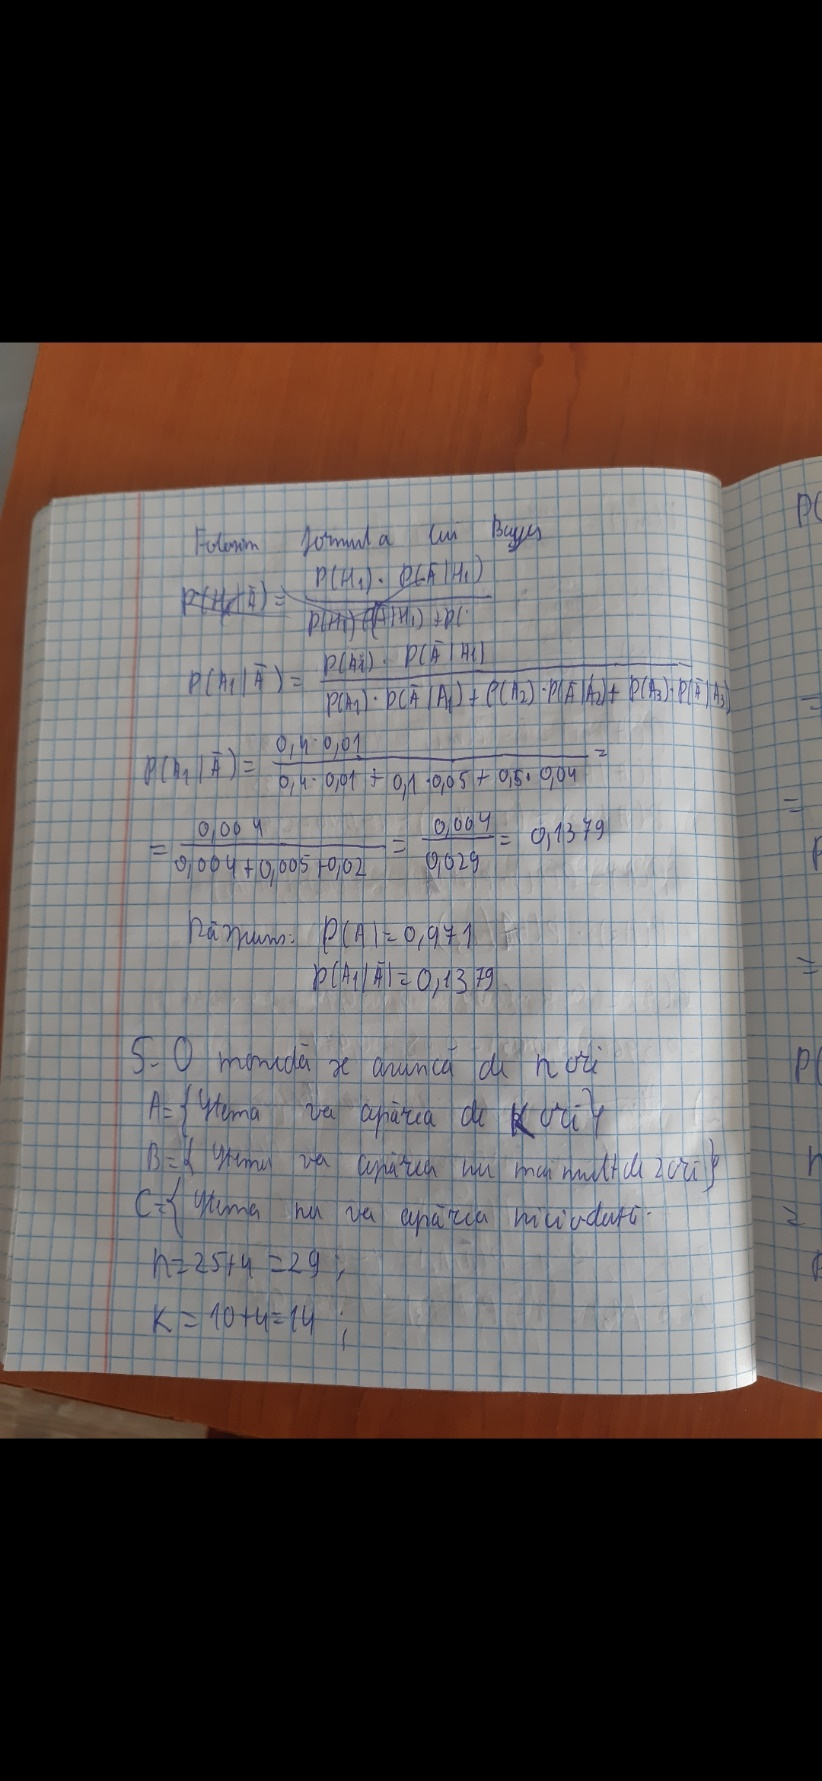 Folosim formula lui Bayes
P(H₁|Ā) = P(H₁) · P(Ā|H₁) / P(H₁) · P(Ā|H₁) + P(
P(A₁|Ā) = P(A₁) · P(Ā|A₁) / P(A₁) · P(Ā|A₁) + P(A₂) · P(Ā|A₂) + P(A₃) · P(Ā|A₃)
P(A₁|Ā) = 0,4·0,01 / 0,4·0,01 + 0,1·0,05 + 0,5·0,04 =
= 0,004 / 0,004+0,005+0,02 = 0,004 / 0,029 = 0,1379
Răspuns: P(A)=0,971
P(A₁|Ā)=0,1379
5. O monedă se aruncă de n ori
A={Stema va apărea de K ori}
B={Stema va apărea nu mai mult de 2 ori}
C={Stema nu va apărea niciodată.
n=25+4=29;
K=10+4=14;